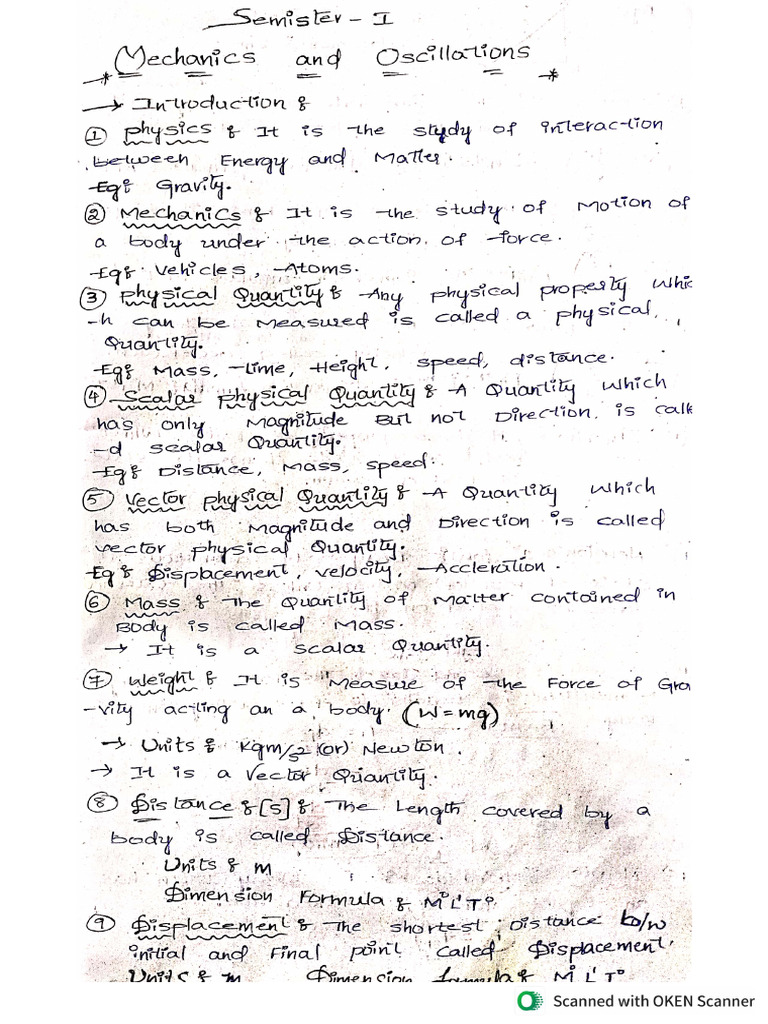 Semister - I
Mechanics and Oscillations
→ Introduction :
① Physics : It is the study of interaction
between Energy and Matter.
Eg: Gravity.
② Mechanics : It is the study of Motion of
a body under the action of force.
Eg: Vehicles, Atoms.
③ Physical Quantity : Any physical property Whic
-h can be Measured is called a physical
Quantity.
Eg: Mass, Time, Height, speed, distance.
④ Scalar physical Quantity : A Quantity which
has only Magnitude But not Direction is calle
-d scalar Quantity.
Eg: Distance, Mass, speed.
⑤ Vector physical Quantity : A Quantity which
has both Magnitude and Direction is called
vector physical Quantity.
Eg : Displacement, velocity, Accleration.
⑥ Mass : The Quantity of Matter contained in
Body is called Mass.
→ It is a scalar Quantity.
⑦ Weight : It is Measure of the Force of Gra
-vity acting an a body. (W=mg)
→ Units : Kgm/s² (or) Newton.
→ It is a Vector Quantity.
⑧ Distance : [S] : The Length covered by a
body is called Distance.
Units : m
Dimension Formula : M⁰L¹T⁰
⑨ Displacement : The shortest Distance b/w
initial and Final point called Displacement.
Units : m Dimension formula : M⁰L¹T⁰
Scanned with OKEN Scanner